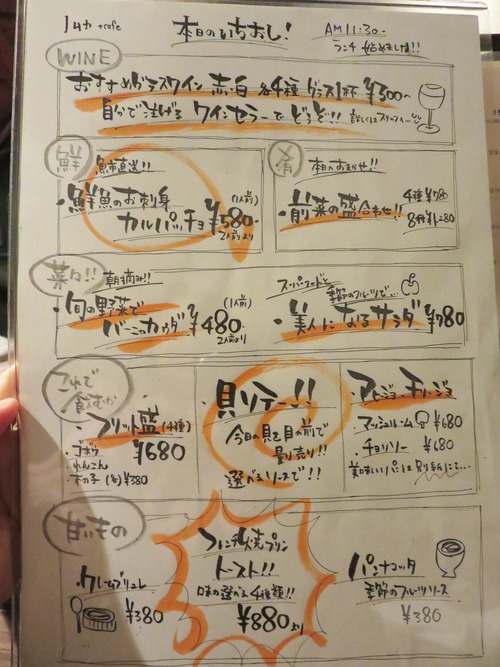 +cafe
本日のいちおし!
AM11:30~
ランチ 始めました!!
WINE
おすすめグラスワイン 赤・白 各4種 グラス1杯 ¥500~
自分で注げる ワインセラーでどうぞ!! 詳しくはスタッフへ
鮮
魚市直送!!
・鮮魚のお刺身
カルパッチョ ¥580
(1人前)
2人前より
肴
本日のおまかせ!!
・前菜の盛合わせ!!
4種 ¥780
8種 ¥1280
菜々!!
朝摘み!!
・旬の野菜で
バーニャカウダ ¥480
(1人前)
2人前より
スーパーフードと
季節のフルーツで…
・美人になるサラダ ¥780
これで
飲むか
・フリット盛 (4種)
¥680
・ゴボウ
・れんこん
・木の子 (各) ¥380
貝リテー!!
今日の貝を目の前で
量り売り!!
選べるソースで!!
アヒージョ・チリージョ
・マッシュルーム ¥680
・チョリソー ¥680
美味しいパンは別紙にて…
甘いもの
・クレームブリュレ
¥380
フレンチ焼プリン
トースト!!
味の選べる4種類!!
¥880より
パンナコッタ
季節のフルーツソース
¥380